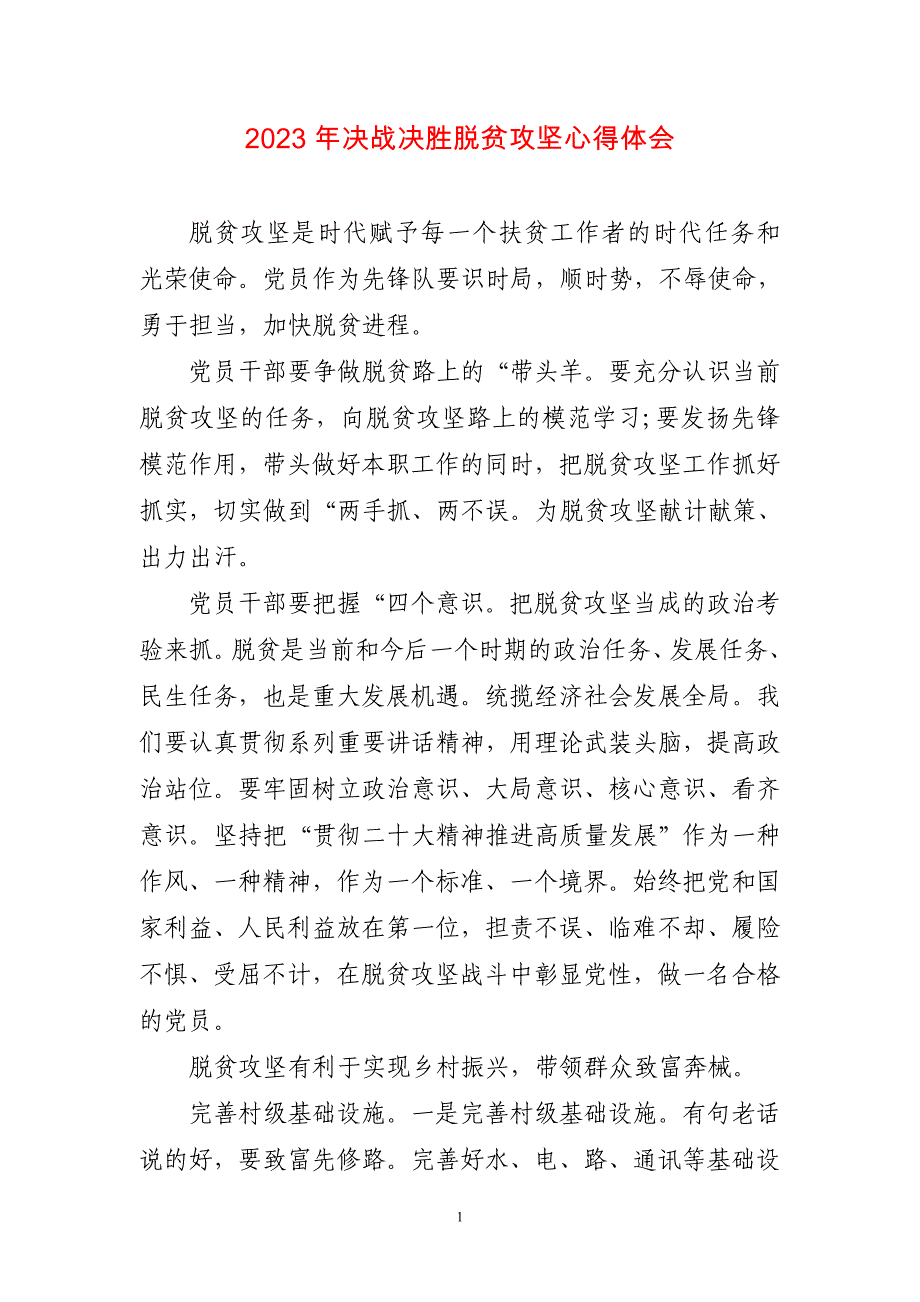 2023 年决战决胜脱贫攻坚心得体会
脱贫攻坚是时代赋予每一个扶贫工作者的时代任务和
光荣使命。党员作为先锋队要识时局，顺时势，不辱使命，
勇于担当，加快脱贫进程。
党员干部要争做脱贫路上的“带头羊。要充分认识当前
脱贫攻坚的任务，向脱贫攻坚路上的模范学习;要发扬先锋
模范作用，带头做好本职工作的同时，把脱贫攻坚工作抓好
抓实，切实做到“两手抓、两不误。为脱贫攻坚献计献策、
出力出汗。
党员干部要把握“四个意识。把脱贫攻坚当成的政治考
验来抓。脱贫是当前和今后一个时期的政治任务、发展任务、
民生任务，也是重大发展机遇。统揽经济社会发展全局。我
们要认真贯彻系列重要讲话精神，用理论武装头脑，提高政
治站位。要牢固树立政治意识、大局意识、核心意识、看齐
意识。坚持把“贯彻二十大精神推进高质量发展”作为一种
作风、一种精神，作为一个标准、一个境界。始终把党和国
家利益、人民利益放在第一位，担责不误、临难不却、履险
不惧、受屈不计，在脱贫攻坚战斗中彰显党性，做一名合格
的党员。
脱贫攻坚有利于实现乡村振兴，带领群众致富奔械。
完善村级基础设施。一是完善村级基础设施。有句老话
说的好，要致富先修路。完善好水、电、路、通讯等基础设
1